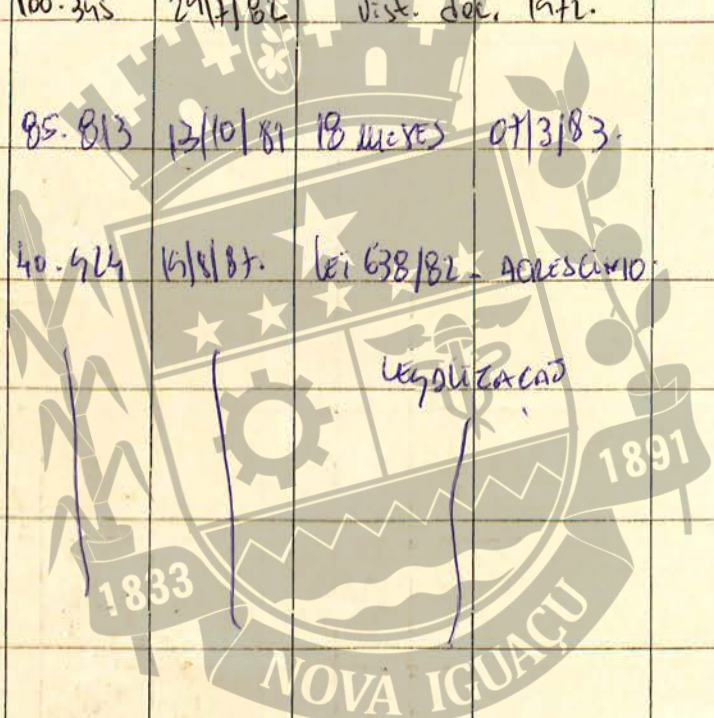 100.345 29/7/82 Vist. dec. 1972.
85.813 13/10/81 18 MESES 07/3/83.
40.424 19/8/87. Lei 638/82 - ACRESCIMO.
LEGALIZACAO
1891
1833
NOVA IGUAÇU